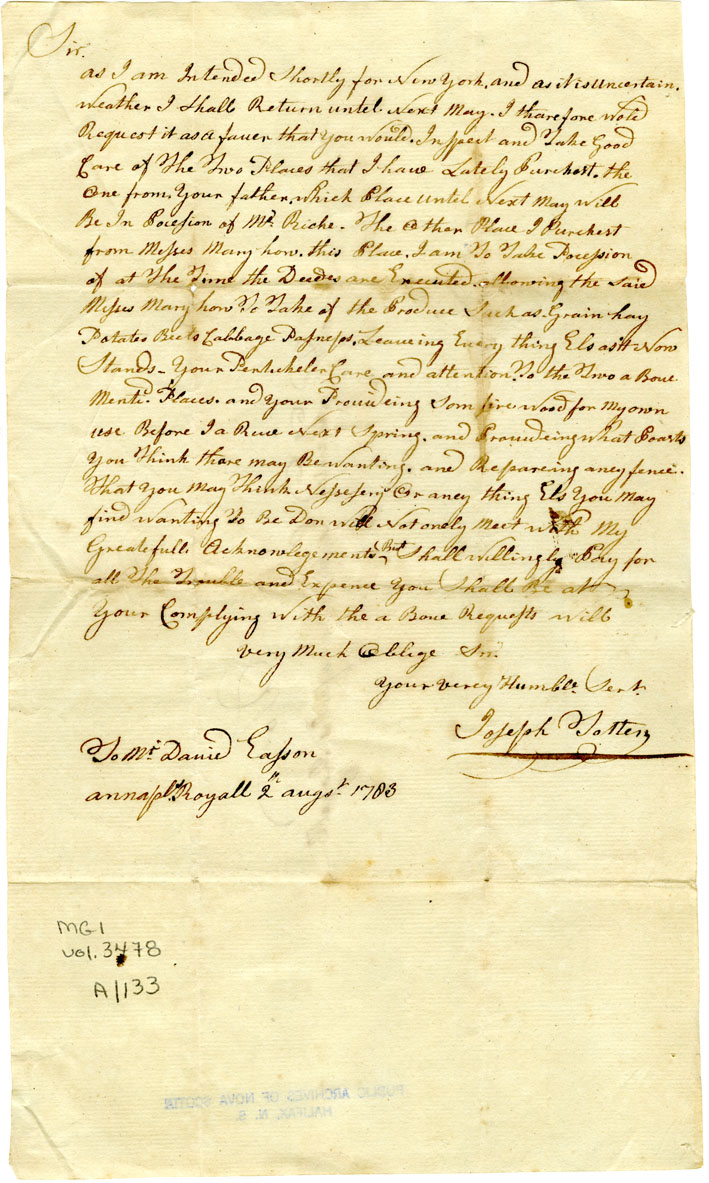 Sir.
as I am Intended Shortly for New York, and as it is uncertain.
weather I Shall Return until Next May. I tharefore wold
Request it as a faver that You would. Inspect and Take Good
Care of The Two Places that I have Lately Purchest. the
One from Your father, which Place until Next May will
Be In Posesion of Mr. Riche. The Other Place I Purchest
from Messes Mary how. this Place, I am To Take Posession
of at The Time the Deedes are Executed. allowing the Said
Messes Mary how To Take of the Produce Such as Grain hay
Potates Beets Cabbage Pasneps. Leaveing Every thing Els as it Now
Stands – Your Pertickeler Care and attention To the Two a Bove
Mentd. Places. and Your Provideing Som fire wood for My own
use Before I a Rive Next Spring. and Provideing what Boards
You Think thare may Be wanting. and Repareing aney fence.
That You May Think Nessesery Or aney thing Els You May
find wanting To Be Don will Not onely Meet with My
Greatefull Acknowlegements But Shall willingly Pay for
all The Trouble and Expence You Shall Be at
Your Complying With the a Bove Requests will
very Much Oblige Sir.
Your verey Humble. Sert.
Joseph Totten
To Mr. David Easson
annapls. Royall 2th. augst. 1783
MG1
vol. 3478
A/133
PUBLIC ARCHIVES OF NOVA SCOTIA
HALIFAX, N. S.